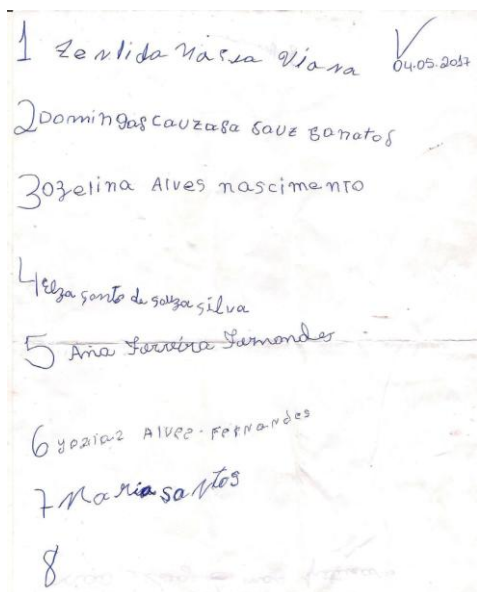 1 Zenlida Massa Viana
04.05.2017
2 Domingas cauzasa sauz Banatos
3 ozelina Alves nascimento
4 elza santo de souza silva
5 Ana Ferreira Fernandes
6 yoziaz Alvee-Fernandes
7 Maria santos
8